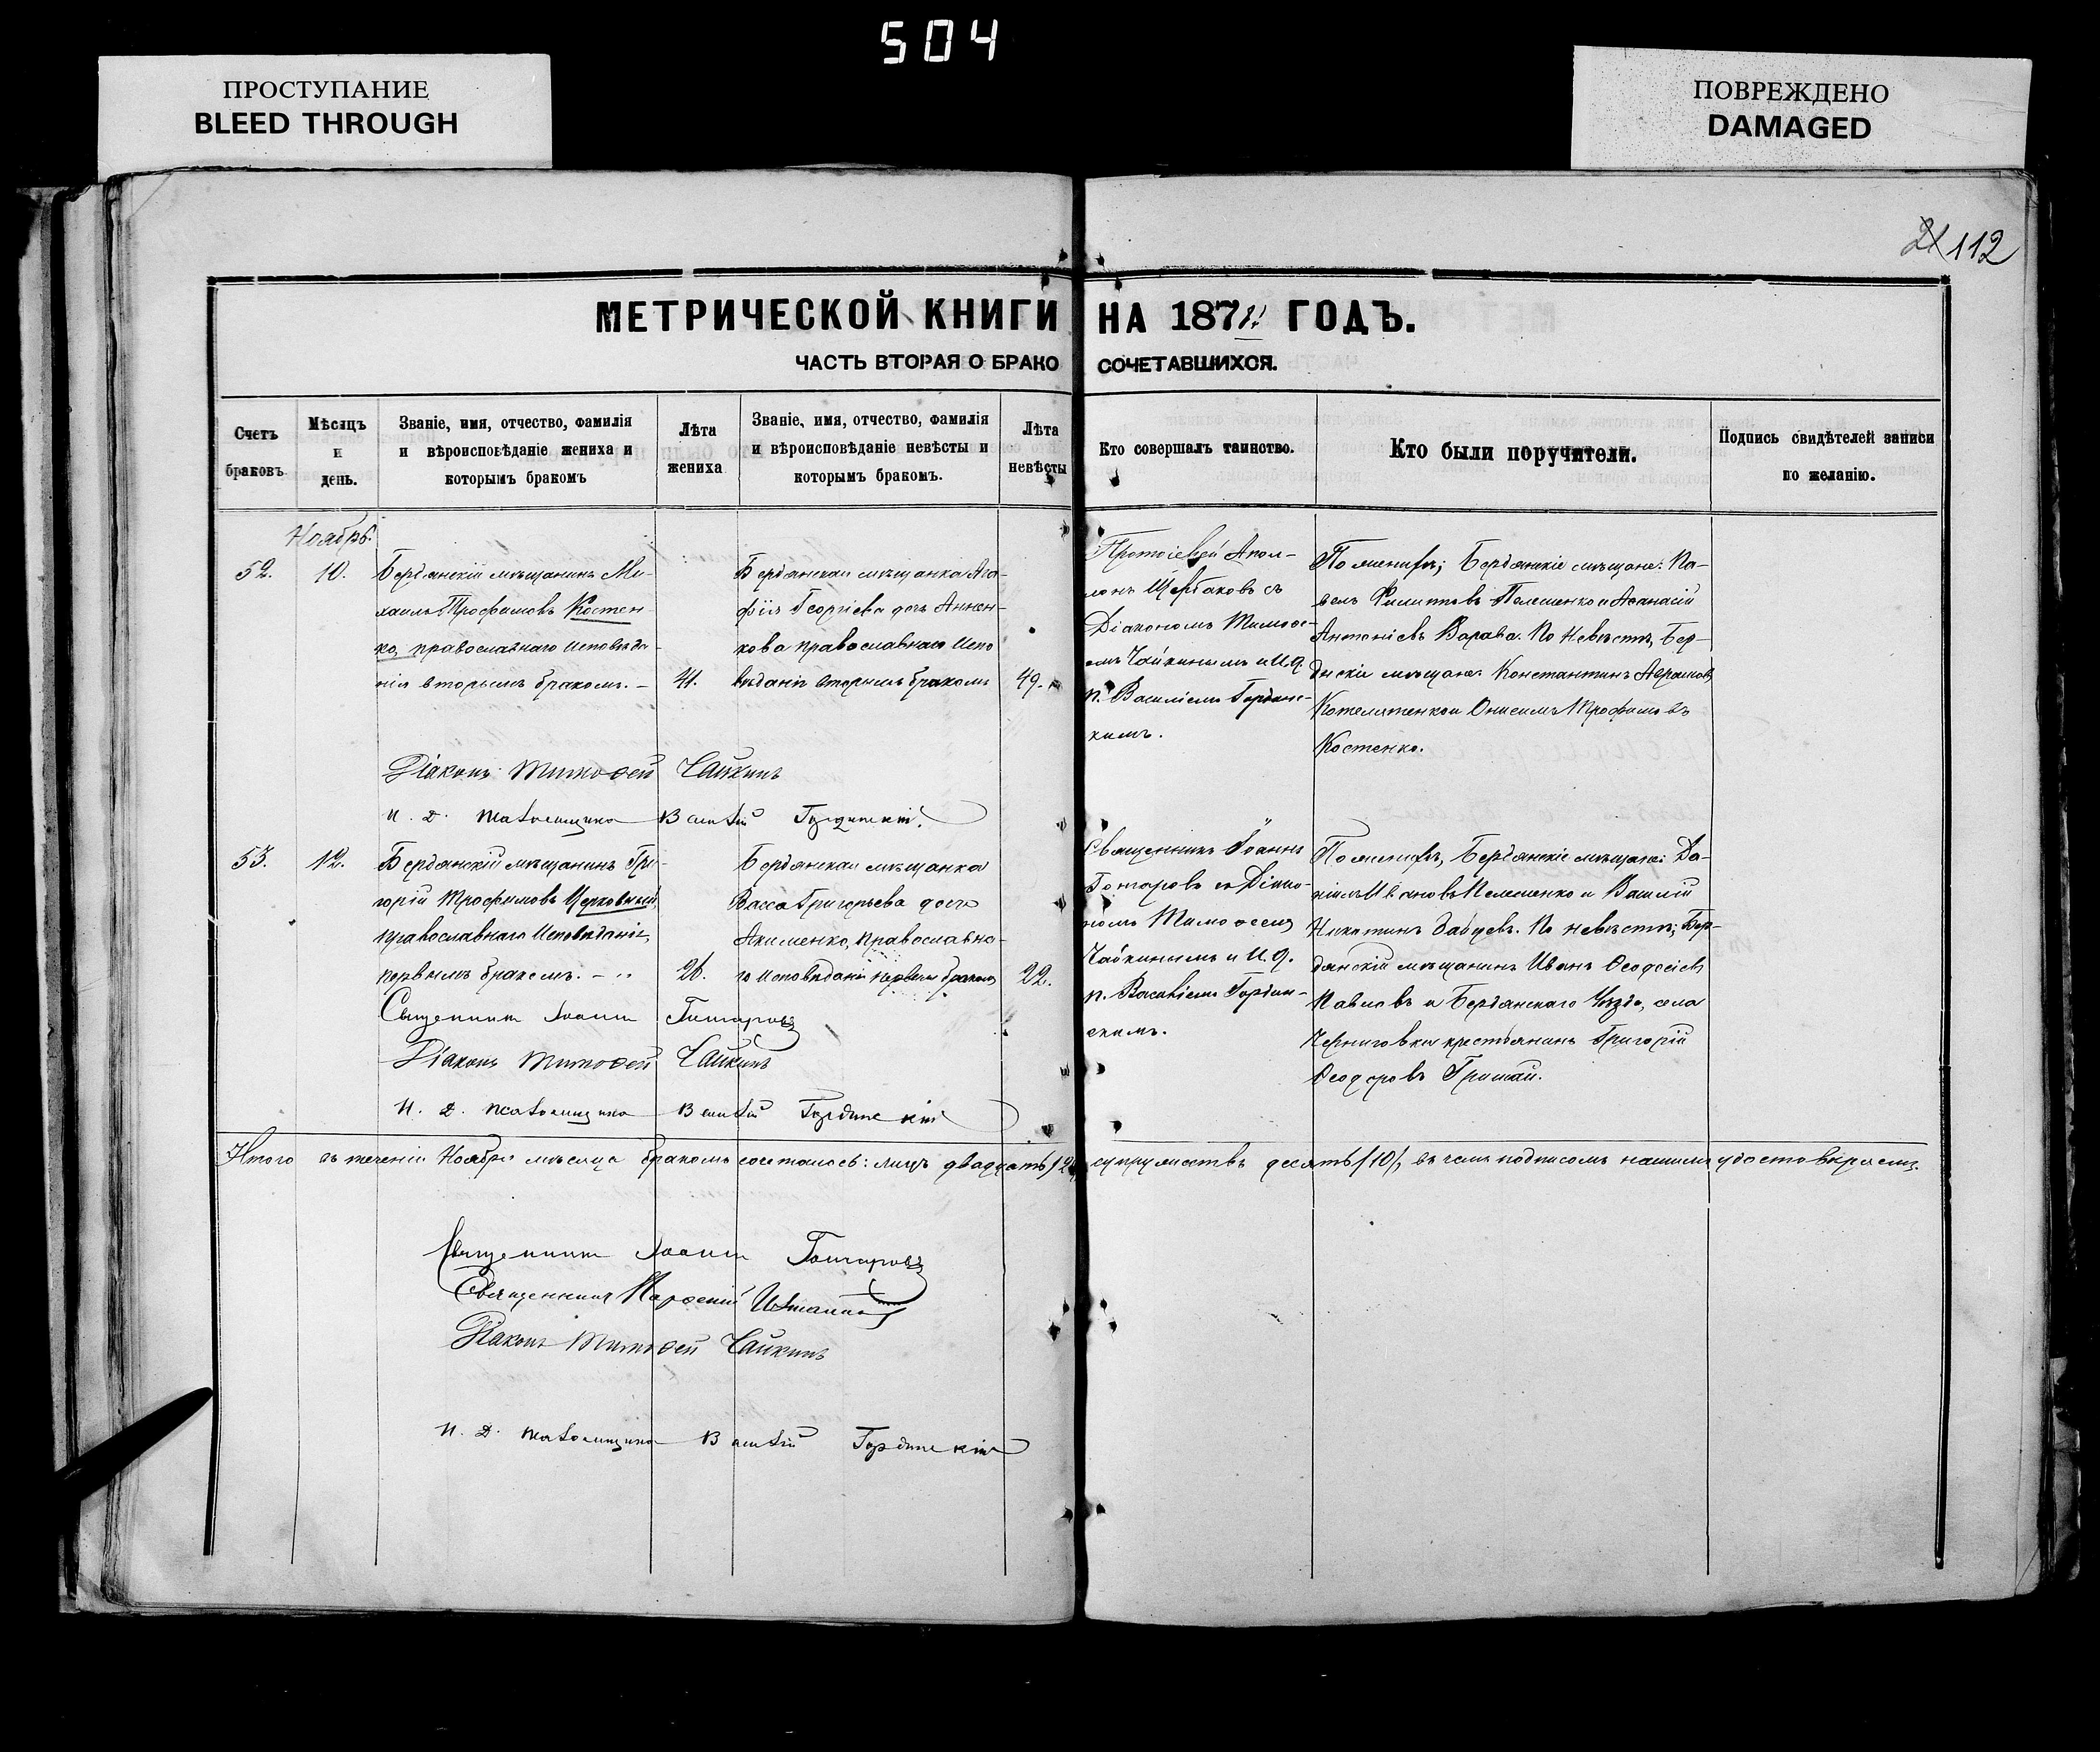 504
ПРОСТУПАНИЕ
BLEED THROUGH
ПОВРЕЖДЕНО
DAMAGED
112
МЕТРИЧЕСКОЙ КНИГИ НА 187 ГОДЪ.
ЧАСТЬ ВТОРАЯ О БРАКОСОЧЕТАВШИХСЯ.
Счетъ браковъ
Мѣсяцъ и день.
Званіе, имя, отчество, фамилія и вѣроисповѣданіе жениха и которымъ бракомъ
Лѣта жениха
Званіе, имя, отчество, фамилія и вѣроисповѣданіе невѣсты и которымъ бракомъ.
Лѣта невѣсты
Кто совершалъ таинство.
Кто были поручители.
Подпись свидѣтелей записи по желанію.
Ноябрь.
52.
10.
Бердянскій мѣщанинъ Ми-
хаилъ Трофимовъ Костен
ко, православнаго исповѣда-
нія вторымъ бракомъ. —
41.
Бердянская мѣщанка Ага-
фія Георгіева дочь Аннен-
кова православнаго испо
вѣданія вторымъ бракомъ
49.
Протоіерей Апол-
лонъ Щербаковъ съ
Діакономъ Тимофе-
емъ Чайкинымъ и И. д.
п. Василіемъ Гордин-
кимъ.
По женихѣ; Бердянскіе мѣщане: Па-
велъ Филипповъ Пелешенко и Афанасій
Антоніевъ Варава. По невѣстѣ, Бер-
дянскіе мѣщане: Константинъ Абрамовъ
и Онисимъ Трофимовъ
Костенко.
Діаконъ Тимофей Чайкинъ
И. д. псаломщика Василій Гординскій.
53.
12.
Бердянскій мѣщанинъ Гри-
горій Трофимовъ Церковный,
православнаго исповѣданія,
первымъ бракомъ. —
26.
Бердянская мѣщанка
Васса Григорьева дочь
Акименко, православна-
го исповѣданія первымъ бракомъ
22.
Священникъ Іоаннъ
Гончаровъ съ Діако-
номъ Тимофеемъ
Чайкинымъ и И. д.
п. Василіемъ Гордин-
скимъ.
По женихѣ, Бердянскіе мѣщане: Да-
ніилъ Ивановъ Пелешенко и Василій
Никитинъ По невѣстѣ; Бер-
дянскій мѣщанинъ Иванъ Феодосіевъ
Павловъ и Бердянскаго Уѣзда, села
Черниговки крестьянинъ Григорій
Феодоровъ
Священникъ Іоаннъ Гончаровъ
Діаконъ Тимофей Чайкинъ
И. д. псаломщика Василій Гординскій
Итого въ теченіи Ноября мѣсяца бракомъ сочеталось: лицъ двадцать /20/ супружествъ десять /10/, въ чемъ подписомъ нашимъ удостовѣряемъ.
Священникъ Іоаннъ Гончаровъ
Священникъ Парфеній
Діаконъ Тимофей Чайкинъ
И. д. псаломщика Василій Гординскій